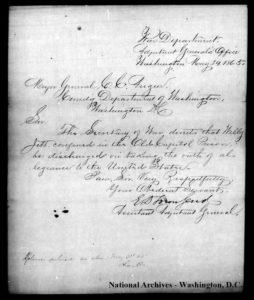 War Department
Adjutant General's Office
Washington May 24 1865.
Major General C. C. Augur
Comdg Department of Washington,
Washington D.C.
Sir
The Secretary of War directs that Willy
Jett, confined in the Old Capitol Prison,
be discharged on taking the oath of al-
legiance to the United States.
I am, Sir, Very Respectfully
Your Obedient Servant,
Assistant Adjutant General.
National Archives - Washington, D.C.